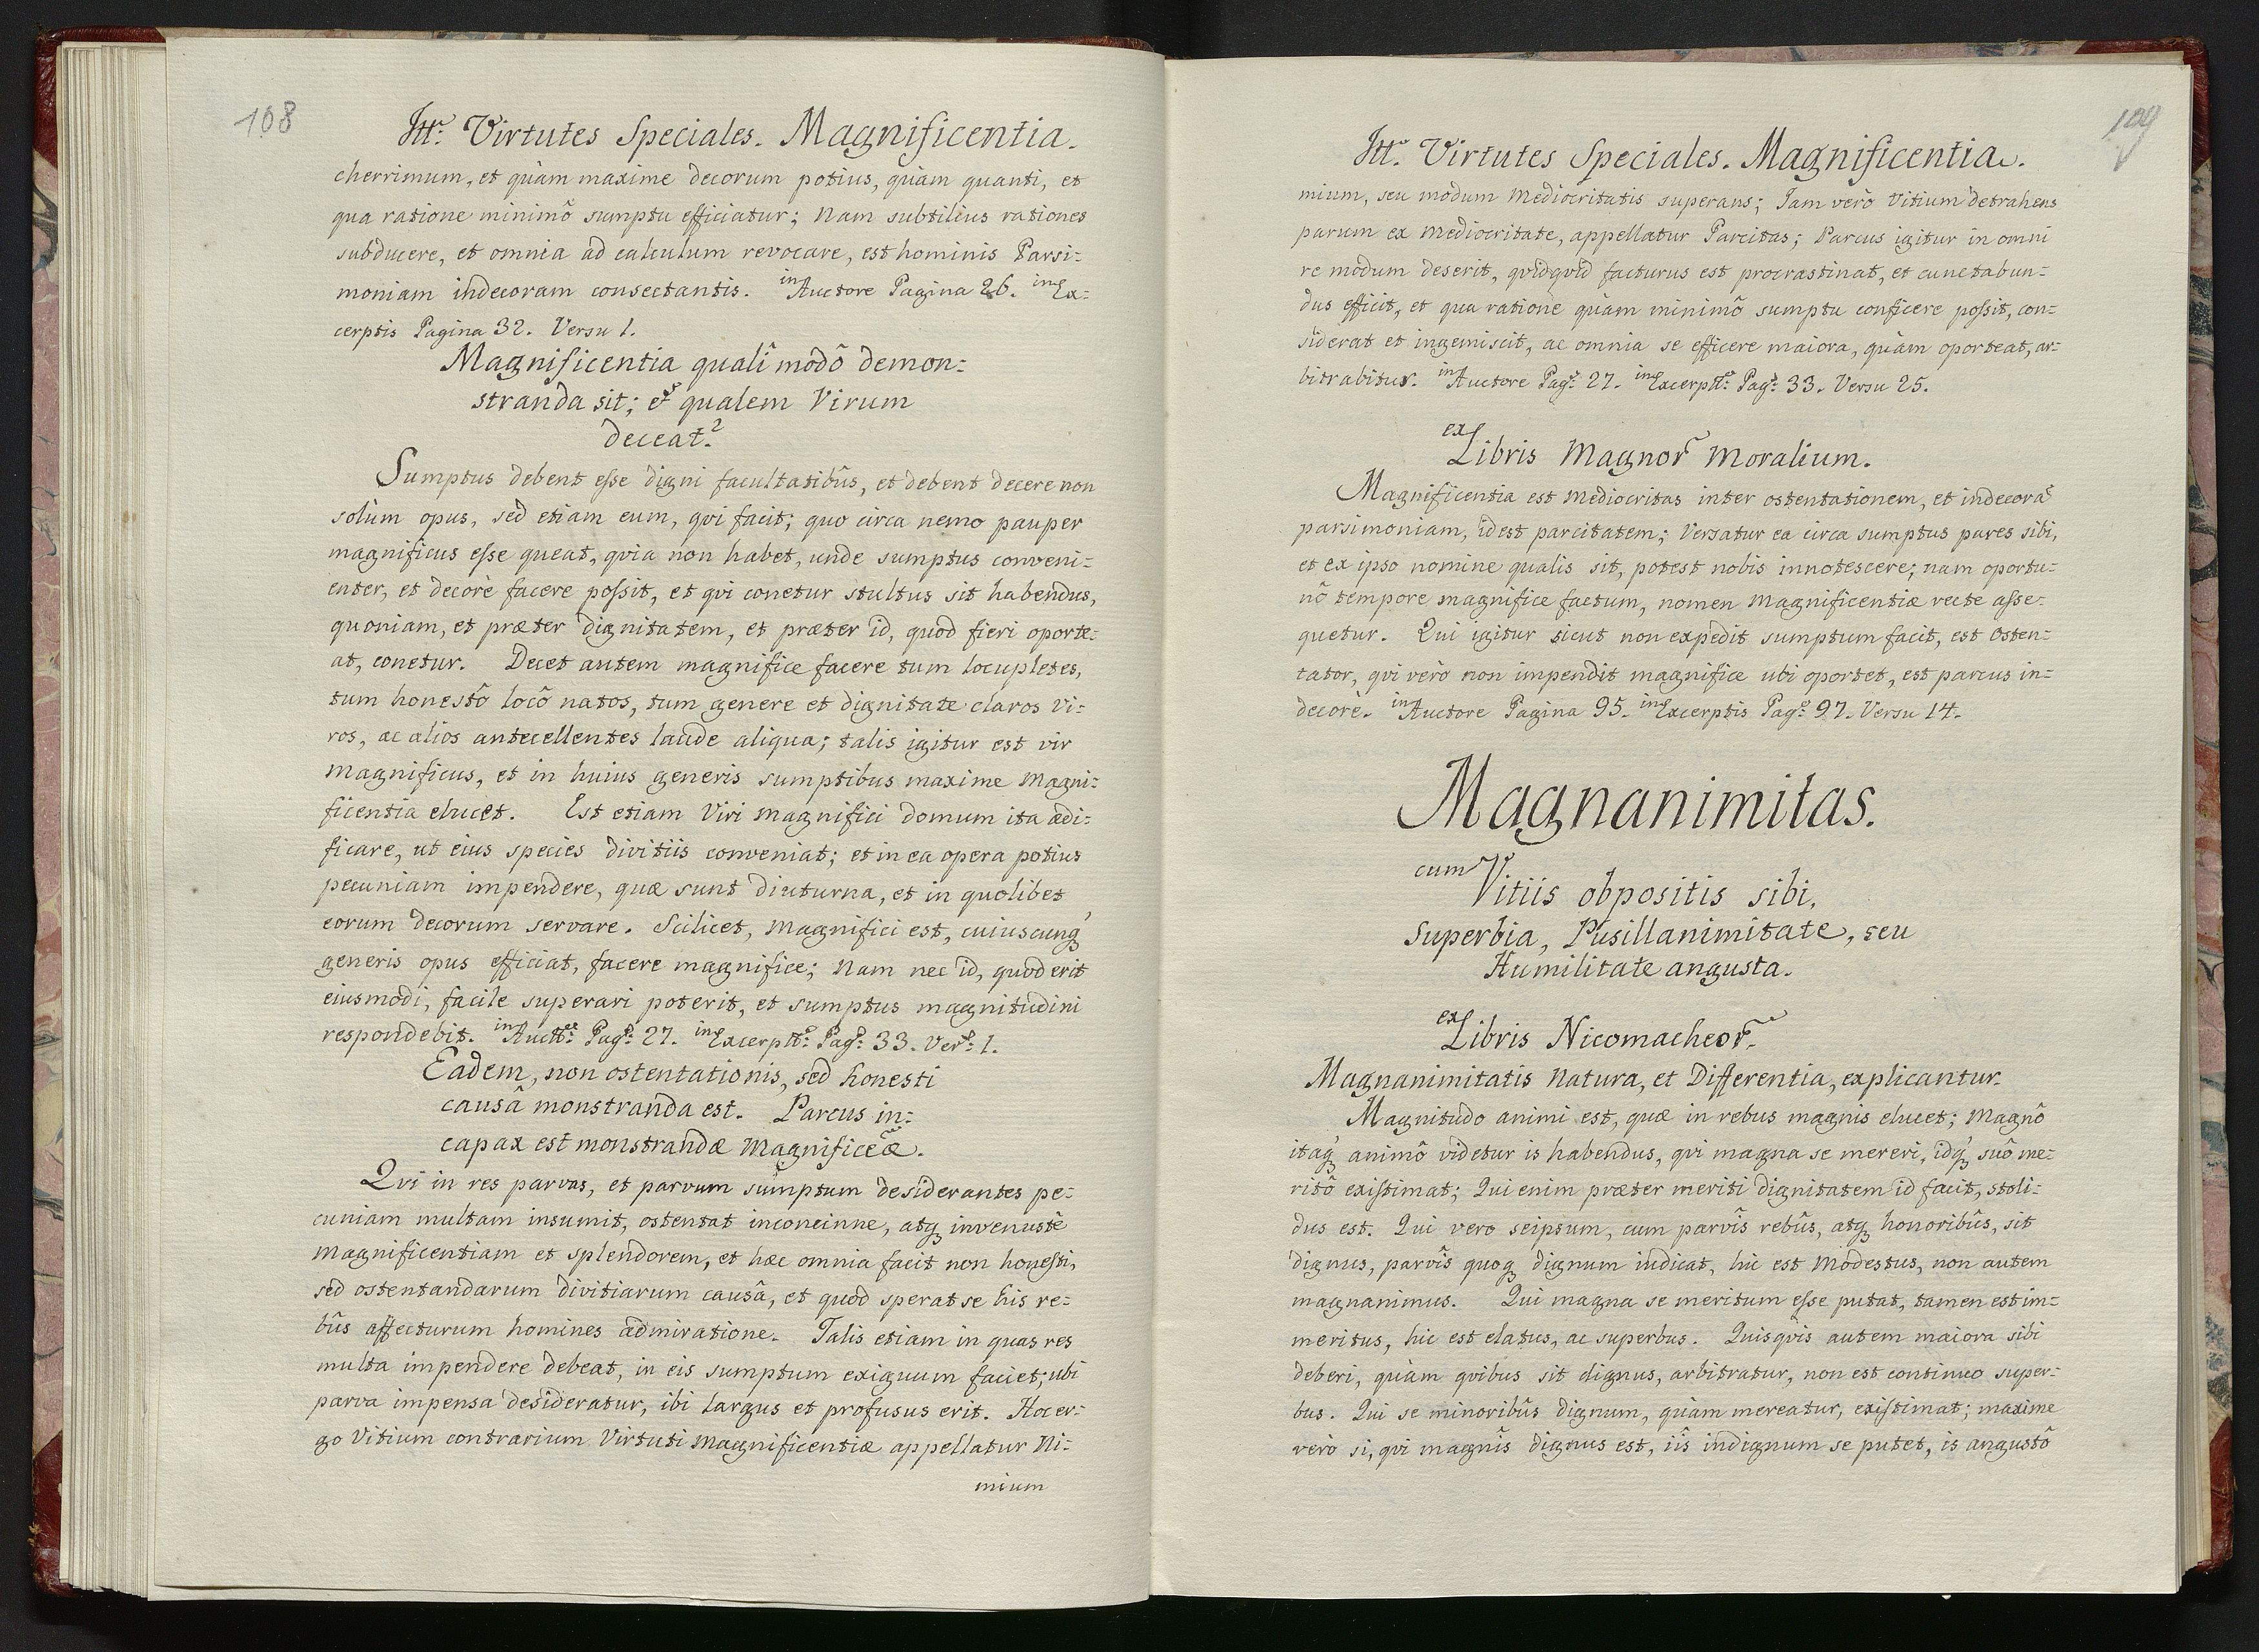 108
Itr: Virtutes Speciales. Magnificentia.
cherrimum, et quàm maxime decorum potius, quàm quanti, et
qua ratione minimô sumptu efficiatur; Nam subtilius rationes
subducere, et omnia ad calculum revocare, est hominis Parsi=
moniam indecoram consectantis. in Auctore Pagina 26. in Ex=
cerptis Pagina 32. Versu 1.
Magnificentia qualî modô demon=
stranda sit; et qualem Virum
deceat?
Sumptus debent esse digni facultatibûs, et debent decere non
solùm opus, sed etiam eum, qvi facit; quo circa nemo pauper
magnificus esse queat, qvia non habet, unde sumptus conveni=
enter, et decorè facere possit, et qvi conetur stultus sit habendus,
quoniam, et præter dignitatem, et præter id, quod fieri oporte=
at, conetur. Decet autem magnifice facere tum locupletes,
tum honestô locô natos, tum genere et dignitate claros vi=
ros, ac alios antecellentes laude aliqua; talis igitur est vir
magnificus, et in huius generis sumptibus maxime Magni=
ficentia elucet. Est etiam Viri magnifici domum ita ædi=
ficare, ut eius species divitiis conveniat; et in ea opera potius
pecuniam impendere, quæ sunt diuturna, et in quolibet
eorum decorum servare. Scilicet, magnifici est, cuiuscunq,
generis opus efficiat, facere magnifice; Nam nec id, quod erit
eiusmodi, facile superari poterit, et sumptus magnitudini
respondebit. in Auctre: Pag: 27. in Excerptis: Pag: 33. Ver: 1.
Eadem, non ostentationis, sed honesti
causâ monstranda est. Parcus in=
capax est monstrandæ Magnificeæ.
Qvi in res parvas, et parvum sumptum desiderantes pe=
cuniam multam insumit, ostentat inconcinne, atq invenustè
Magnificentiam et splendorem, et hæc omnia facit non honesti,
sed ostentandarum divitiarum causâ, et quod sperat se his re=
bûs affecturum homines admiratione. Talis etiam in quas res
multa impendere debeat, in eis sumptum exiguum faciet; ubi
parva impensa desideratur, ibi largus et profusus erit. Hoc er=
go Vitium contrarium Virtuti Magnificentiæ appellatur Ni=
mium
109
Itr: Virtutes Speciales. Magnificentia.
mium, seu modum Mediocritatis superans; Jam verò Vitium detrahens
parum ex mediocritate, appellatur Parcitas; Parcus igitur in omni
re modum deserit, qvidqvid facturus est procrastinat, et cunctabun=
dus efficit, et qua ratione quàm minimô sumptu conficere possit, con=
siderat et ingemiscit, ac omnia se efficere maiora, quàm oporteat, ar=
bitrabitur. in Auctore Pag: 27. in Excerptis: Pag: 33. Versu 25.
ex Libris Magnor Moralium.
Magnificentia est Mediocritas inter ostentationem, et indecorã
parsimoniam, id est parcitatem; Versatur ea circa sumptus pares sibi,
et ex ipso nomine qualis sit, potest nobis innotescere; nam oportu=
nô tempore magnifice factum, nomen Magnificentiæ recte asse=
quetur. Qui igitur sicut non expedit sumptum facit, est Osten=
tator, qvi verò non impendit magnifice ubi oportet, est parcus in=
decorè. in Auctore Pagina 95. in Excerptis Pag: 97. Versu 14.
Magnanimitas.
cum Vitiis obpositis sibi,
Superbia, Pusillanimitate, seu
Humilitate angusta.
ex Libris Nicomacheor.
Magnanimitatis Natura, et Differentia, explicantur.
Magnitudo animi est, quæ in rebus magnis elucet; Magnô
itaq, animô videtur is habendus, qvi magna se mereri, idq, suô me=
ritô existimat; Qui enim præter meriti dignitatem id facit, stoli=
dus est. Qui vero seipsum, cum parvîs rebûs, atq honoribûs, sit
dignus, parvîs quoq dignum iudicat, hic est Modestus, non autem
magnanimus. Qui magna se meritum esse putat, tamen est im=
meritus, hic est elatus, ac superbus. Quisqvis autem maiora sibi
deberi, quàm qvibus sit dignus, arbitratur, non est continuo super=
bus. Qui se minoribûs dignum, quàm mereatur, existimat; maxime
verò si, qvi magnîs dignus est, iîs indignum se putet, is angustô